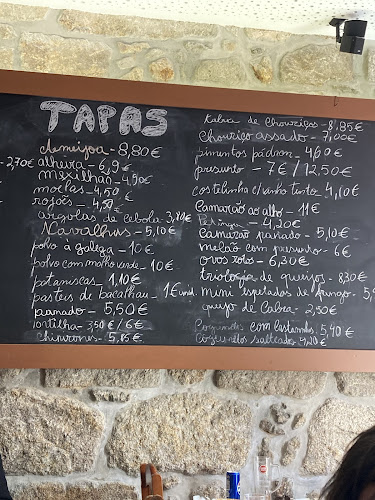 TAPAS
ameijoa - 8,80€
2,70€ alheira - 6,9€
mexilhão - 4,90€
moelas - 4,50
rojões - 4,50€
argolas de cebola - 3,80€
Navalhas - 5,10€
polvo à galega - 10€
polvo com molho verde - 10€
pataniscas 1,10€
pasteis de bacalhau - 1€ unid.
panado - 5,50€
tortilha - 3,50€ / 6€
chipirones - 5,85€
Tabua de Chouriços - 8,85€
Chouriço assado - 7,00€
pimentos pádron - 4,60€
presunto - 7€ / 12,50€
costelinha c/ vinho tinto - 4,10€
Camarão ao alho - 11€
4,20€
Camarão panado - 5,10€
melão com presunto - 6€
ovos rotos - 6,30€
triologia de queijos - 8,30€
mini espetadas de frango - 5,9
queijo de Cabra - 2,50€
com Castanhas - 5,40€
Cogumelos salteados - 4,20€